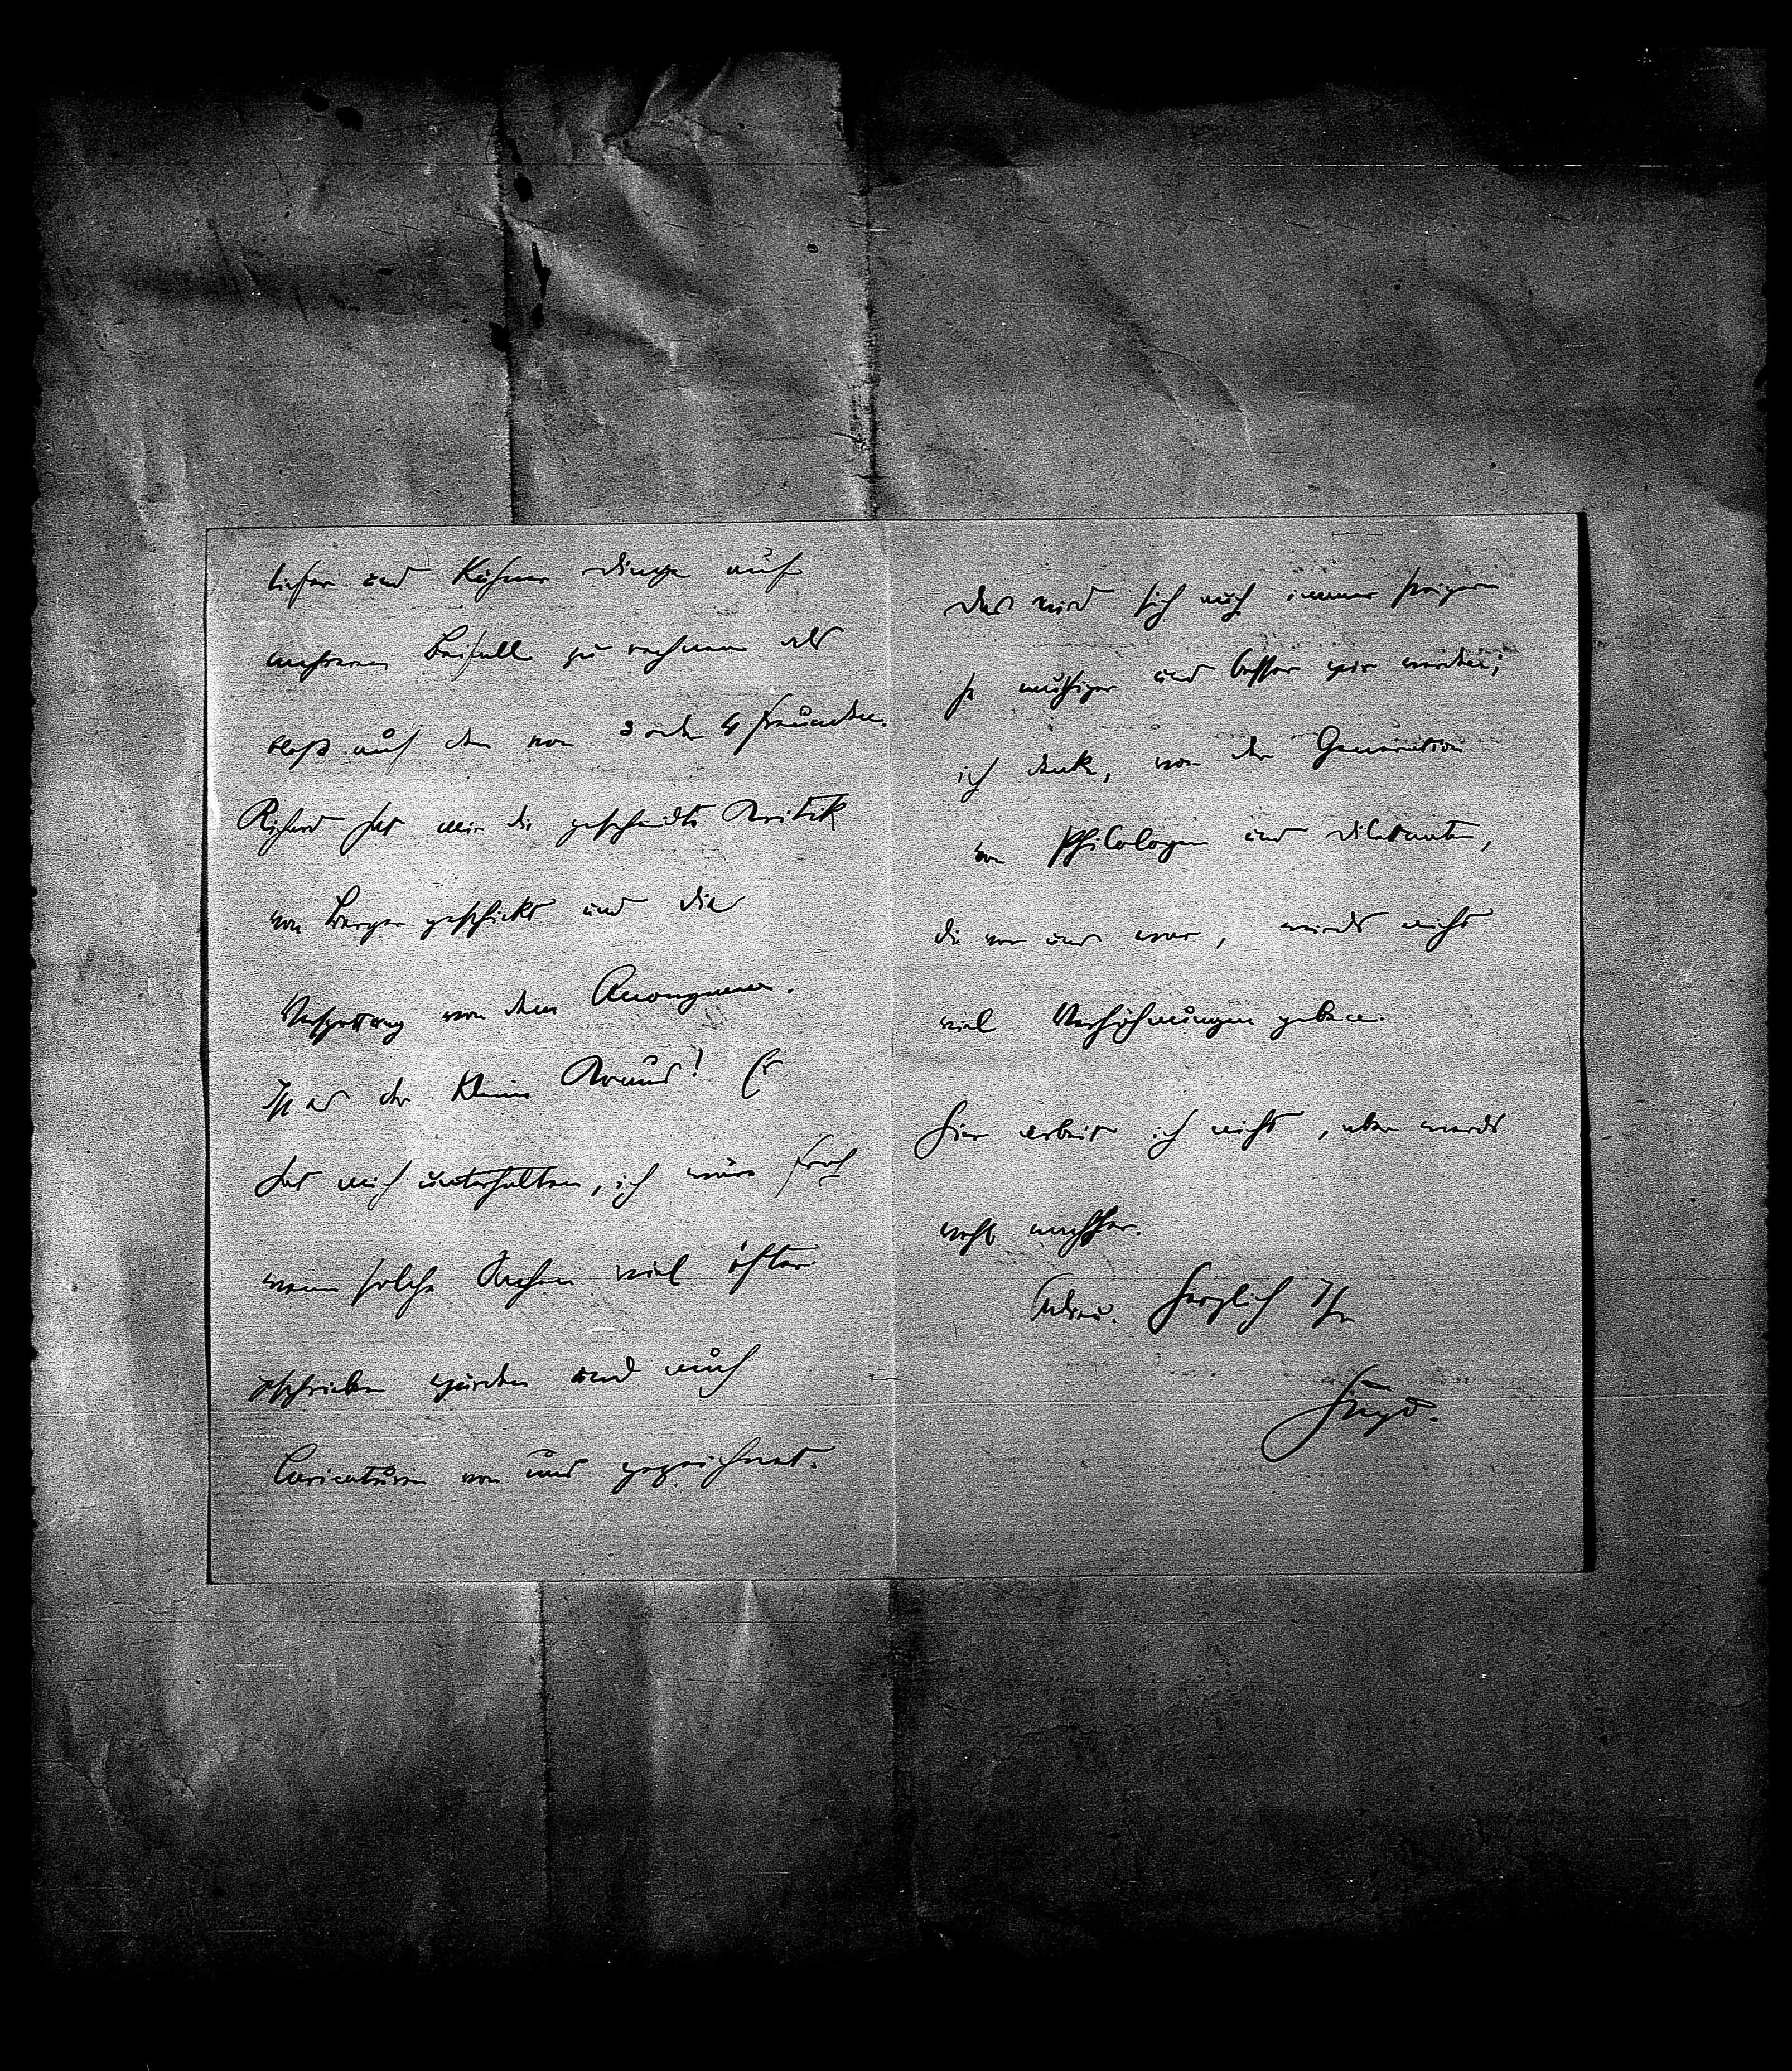 tiefer und kühner Dinge auf
mehreren Beifall zu rechnen als
bloß auf den von 3 oder 4 Freunden.
Richard hat mir die gescheidte Kritik
von Berger geschickt und die
Verspottung von dem Anonymen.
Ist es der kleine Kraus? Er
hat mich unterhalten, ich wäre froh
wenn solche Sachen viel öfter
geschrieben würden und auch
Caricaturen von uns gezeichnet.
Das wird sich auch immer steigern
je muthiger und besser wir werden;
ich denk, von der Generation
von Philologen und Dilettanten,
die vor uns war, wirds nicht
viel Verhöhnungen geben.
Hier arbeit ich nicht, aber werds
wohl nachher.
Adieu. Herzlich Ihr
Hugo.